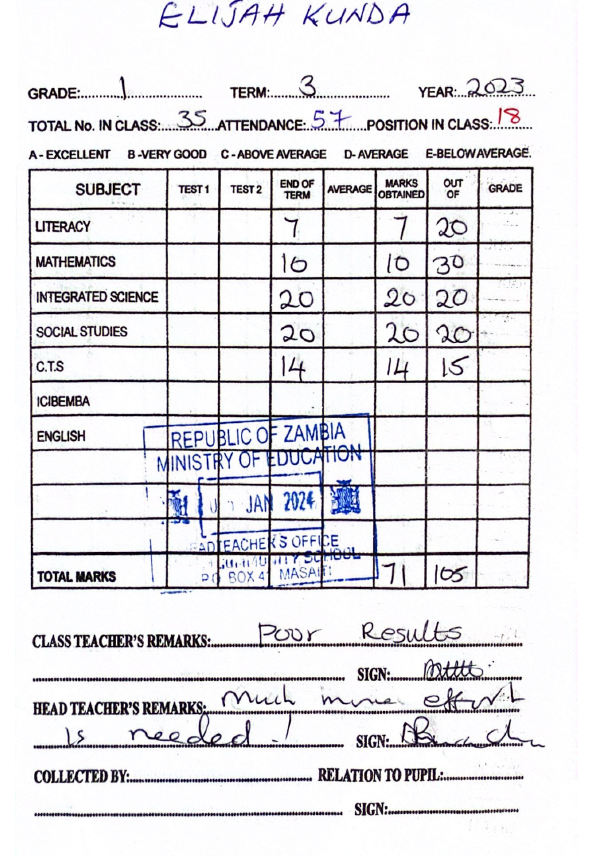 ELIJAH KUNDA
GRADE:.......1............ TERM:.......3............ YEAR:..2023..
TOTAL No. IN CLASS:..35..ATTENDANCE:.57...POSITION IN CLASS:.18..
A - EXCELLENT B -VERY GOOD C - ABOVE AVERAGE D- AVERAGE E-BELOW AVERAGE.
SUBJECT TEST 1 TEST 2 END OF TERM AVERAGE MARKS OBTAINED OUT OF GRADE
LITERACY 7 7 20
MATHEMATICS 10 10 30
INTEGRATED SCIENCE 20 20 20
SOCIAL STUDIES 20 20 20
C.T.S 14 14 15
ICIBEMBA
ENGLISH
REPUBLIC OF ZAMBIA
MINISTRY OF EDUCATION
JAN 2024
HEADTEACHER'S OFFICE
COMMUNITY SCHOOL
P.O. BOX 4 MASAITI
TOTAL MARKS 71 105
CLASS TEACHER'S REMARKS: Poor Results
SIGN:
HEAD TEACHER'S REMARKS: Much more effort
is needed! SIGN:
COLLECTED BY: RELATION TO PUPIL:
SIGN: